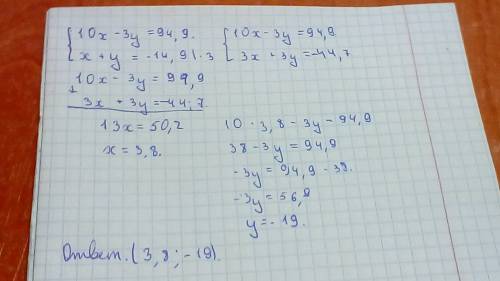 {10x - 3y = 94,9.
{x + y = -14,9 | · 3
{10x - 3y = 94,9
{3x + 3y = -44,7
10x - 3y = 99,9
+
3x + 3y = -44,7.
13x = 50,2
x = 3,8.
10 · 3,8 - 3y - 94,9
38 - 3y = 94,9
-3y = 94,9 - 38.
-3y = 56,9
y = - 19.
Ответ. (3,8; -19).